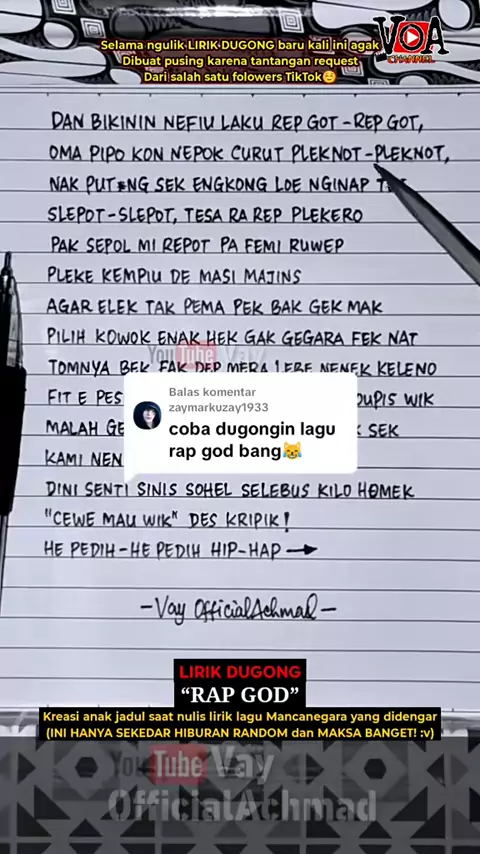 Selama ngulik LIRIK DUGONG baru kali ini agak
Dibuat pusing karena tantangan request
Dari salah satu folowers TikTok☺️
VOA
CHANNEL
DAN BIKININ NEFIU LAKU REP GOT-REP GOT,
OMA PIPO KON NEPOK CURUT PLEKNOT-PLEKNOT,
NAK PUT*NG SEK ENGKONG LOE NGINAP
SLEPOT-SLEPOT, TESA RA REP PLEKERO
PAK SEPOL MI REPOT PA FEMI RUWEP
PLEKE KEMPIU DE MASI MAJINS
AGAR ELEK TAK PEMA PEK BAK GEK MAK
PILIH KOWOK ENAK HEK GAK GEGARA FEK NAT
YouTube Vay
TOMNYA BEK FAK DEP MERA LEBE NENEK KELENO
FIT E PES OUPIS WIK
MALAH GE SEK
KAMI NEN
Balas komentar
zaymarkuzay1933
coba dugongin lagu
rap god bang😹
DINI SENTI SINIS SOHEL SELEBUS KILO HOMEK
"CEWE MAU WIK" DES KRIPIK!
HE PEDIH-HE PEDIH HIP-HAP →
-Vay OfficialAchmad-
LIRIK DUGONG
“RAP GOD”
Kreasi anak jadul saat nulis lirik lagu Mancanegara yang didengar
(INI HANYA SEKEDAR HIBURAN RANDOM dan MAKSA BANGET! :v)
YouTube Vay
OfficialAchmad